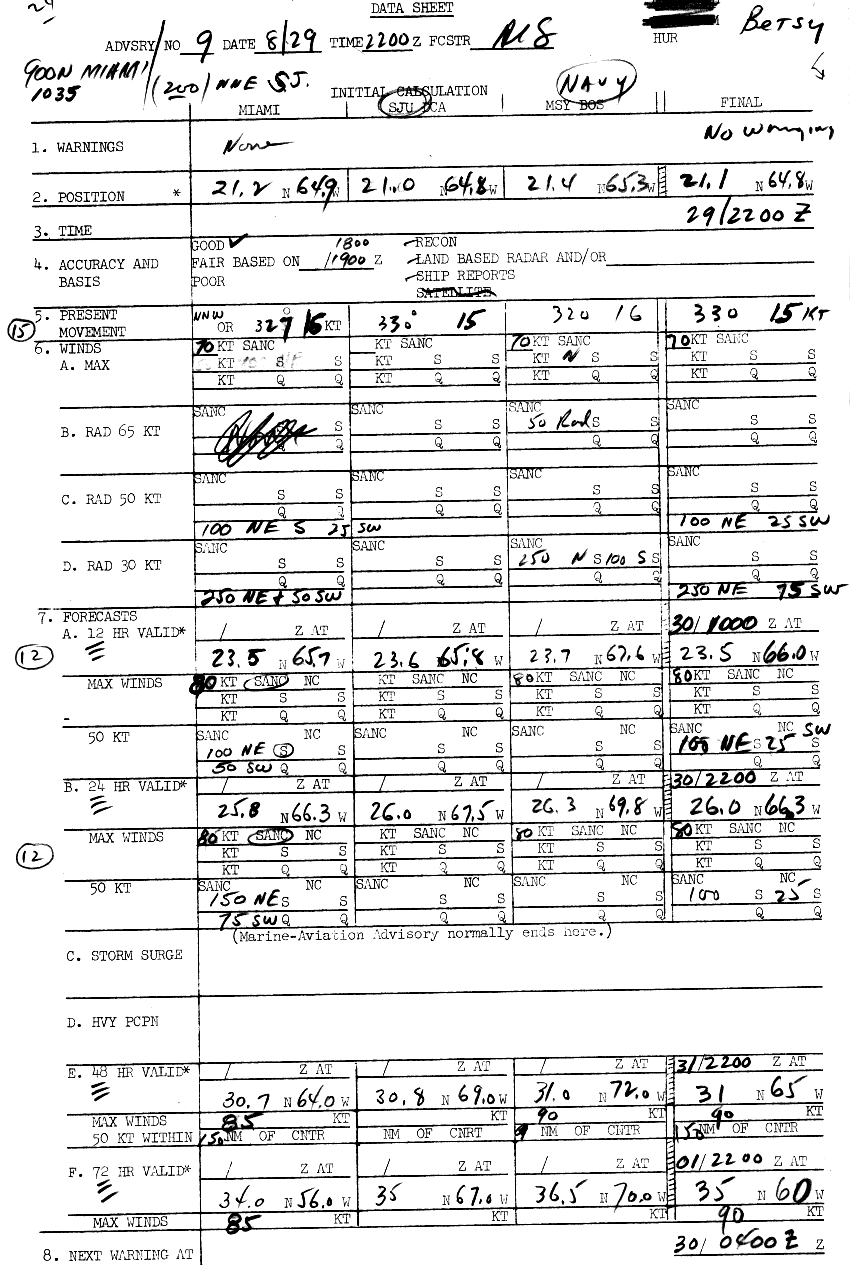 DATA SHEET
ADVSRY NO 9 DATE 8/29 TIME 2200 Z FCSTR HUR BETSY
GOON MIAMI
1035 (200) NNE S.J.
INITIAL CALCULATION NAVY
MIAMI SJU DCA MSY BOS FINAL
1. WARNINGS None No warning
2. POSITION * 21.2 N 64.9 W 21.0 N 64.8 W 21.4 N 65.3 W 21.1 N 64.8 W
3. TIME 29/2200 Z
GOOD ✓ 1800 RECON
4. ACCURACY AND FAIR BASED ON /1900 Z LAND BASED RADAR AND/OR
BASIS POOR SHIP REPORTS
SATELLITE
5. PRESENT NNW
15 MOVEMENT OR 327° 16 KT 330° 15 320 16 330 15 KT
6. WINDS 70 KT SANC KT SANC 70 KT SANC 70 KT SANC
A. MAX KT S S KT S S KT N S S KT S S
KT Q Q KT Q Q KT Q Q KT Q Q
SANC SANC SANC SANC
B. RAD 65 KT S S 50 Rad S S S
Q Q Q Q Q Q
SANC SANC SANC SANC
C. RAD 50 KT S S S S S S S S
Q Q Q Q Q Q Q Q
100 NE S 25 SW 100 NE 25 SW
SANC SANC SANC SANC
D. RAD 30 KT S S S S 250 N S 100 S S S S
Q Q Q Q Q Q Q Q
250 NE + 50 SW 250 NE 75 SW
7. FORECASTS
A. 12 HR VALID* / Z AT / Z AT / Z AT 30/1000 Z AT
12 23.5 N 65.7 W 23.6 65.8 W 23.7 N 67.6 W 23.5 N 66.0 W
MAX WINDS 80 KT SANC NC KT SANC NC 80 KT SANC NC 80 KT SANC NC
KT S S KT S S KT S S KT S S
KT Q Q KT Q Q KT Q Q KT Q Q
50 KT SANC NC SANC NC SANC NC SANC NC SW
100 NE S S S S S S 100 NE S 25 S
50 SW Q Q Q Q Q Q Q Q
B. 24 HR VALID* / Z AT / Z AT / Z AT 30/2200 Z AT
25.8 N 66.3 W 26.0 N 67.5 W 26.3 N 69.8 W 26.0 N 66.3 W
MAX WINDS 80 KT SANC NC KT SANC NC 80 KT SANC NC 80 KT SANC NC
12 KT S S KT S S KT S S KT S S
KT Q Q KT Q Q KT Q Q KT Q Q
50 KT SANC NC SANC NC SANC NC SANC NC
150 NE S S S S S S 100 S 25 S
75 SW Q Q Q Q Q Q Q Q
(Marine-Aviation Advisory normally ends here.)
C. STORM SURGE
D. HVY PCPN
E. 48 HR VALID* / Z AT / Z AT / Z AT 31/2200 Z AT
30.7 N 64.0 W 30.8 N 69.0 W 31.0 N 72.0 W 31 N 65 W
MAX WINDS 85 KT KT 90 KT 90 KT
50 KT WITHIN 150 NM OF CNTR NM OF CNRT NM OF CNTR 150 NM OF CNTR
F. 72 HR VALID* / Z AT / Z AT / Z AT 01/2200 Z AT
34.0 N 56.0 W 35 N 67.0 W 36.5 N 70.0 W 35 N 60 W
MAX WINDS 85 KT KT KT 90 KT
8. NEXT WARNING AT 30/0400 Z Z